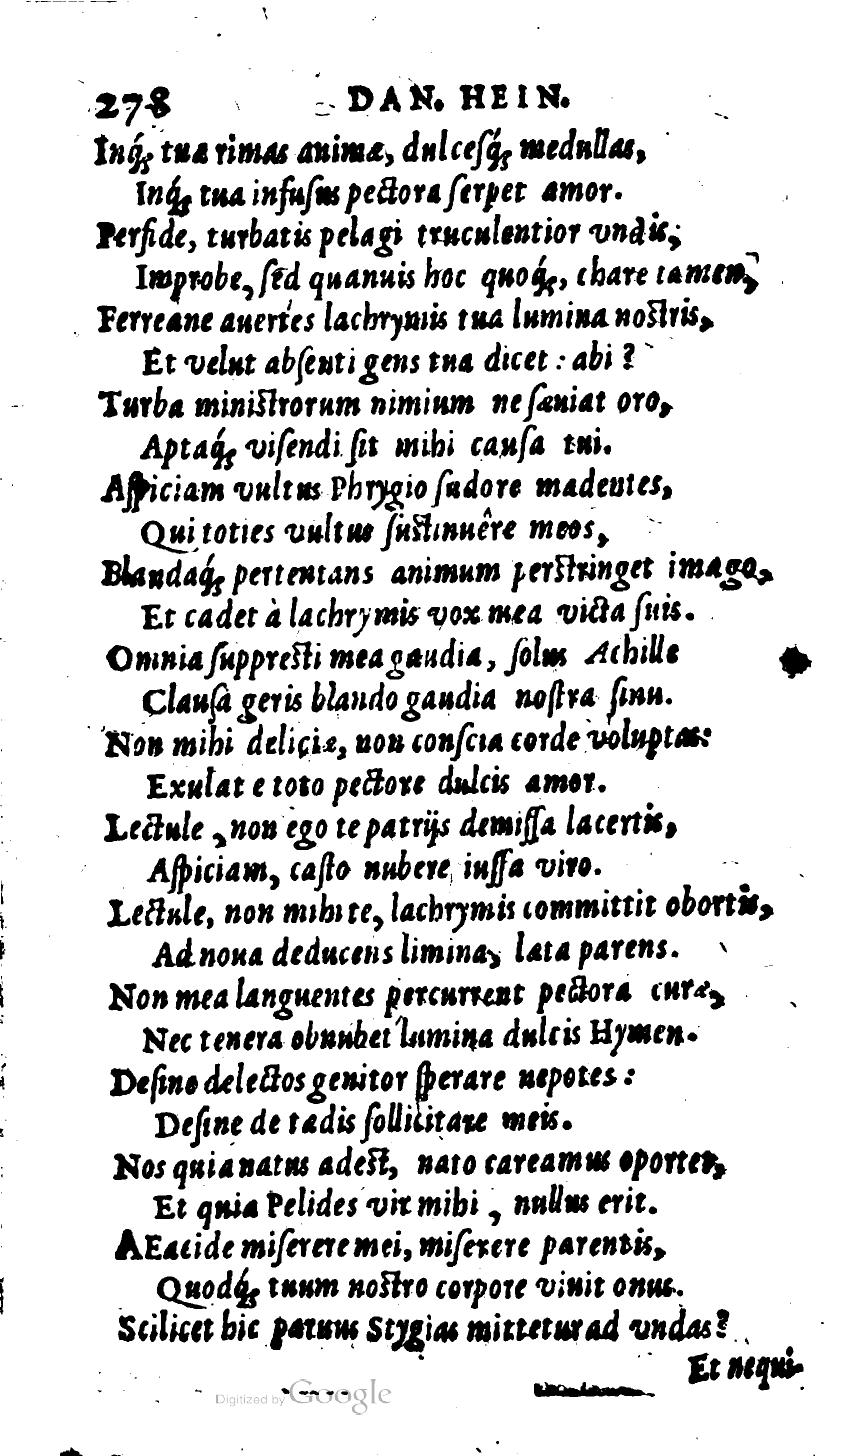 278 DAN. HEIN.
Inq́; tua rimas animæ, dulceſq́; medullas,
Inq́; tua infuſus pectora ſerpet amor.
Perfide, turbatis pelagi truculentior vndis;
Improbe, ſed quanuis hoc quoq́;, chare tamen,
Ferreane auertes lachrymis tua lumina noſtris,
Et velut abſenti gens tua dicet : abi ?
Turba miniſtrorum nimium ne ſæuiat oro,
Aptaq́; viſendi ſit mihi cauſa tui.
Aſpiciam vultus Phrygio ſudore madentes,
Qui toties vultus ſuſtinuêre meos,
Blandaq́; pertentans animum perſtringet imago,
Et cadet à lachrymis vox mea victa ſuis.
Omnia ſuppreſti mea gaudia, ſolus Achille
Clauſa geris blando gaudia noſtra ſinu.
Non mihi deliciæ, non conſcia corde voluptas:
Exulat e toto pectore dulcis amor.
Lectule, non ego te patrijs demiſſa lacertis,
Aſpiciam, caſto nubere iuſſa viro.
Lectule, non mihi te, lachrymis committit obortis,
Ad noua deducens limina, læta parens.
Non mea languentes percurrent pectora curæ,
Nec tenera obnubet lumina dulcis Hymen.
Deſine delectos genitor ſperare nepotes :
Deſine de tædis ſollicitare meis.
Nos quia natus adeſt, nato careamus oportet,
Et quia Pelides vir mihi, nullus erit.
AEacide miſerere mei, miſerere parentis,
Quodq́; tuum noſtro corpore viuit onus.
Scilicet hic paruus Stygias mittetur ad vndas?
Et nequi-
Digitized by Google